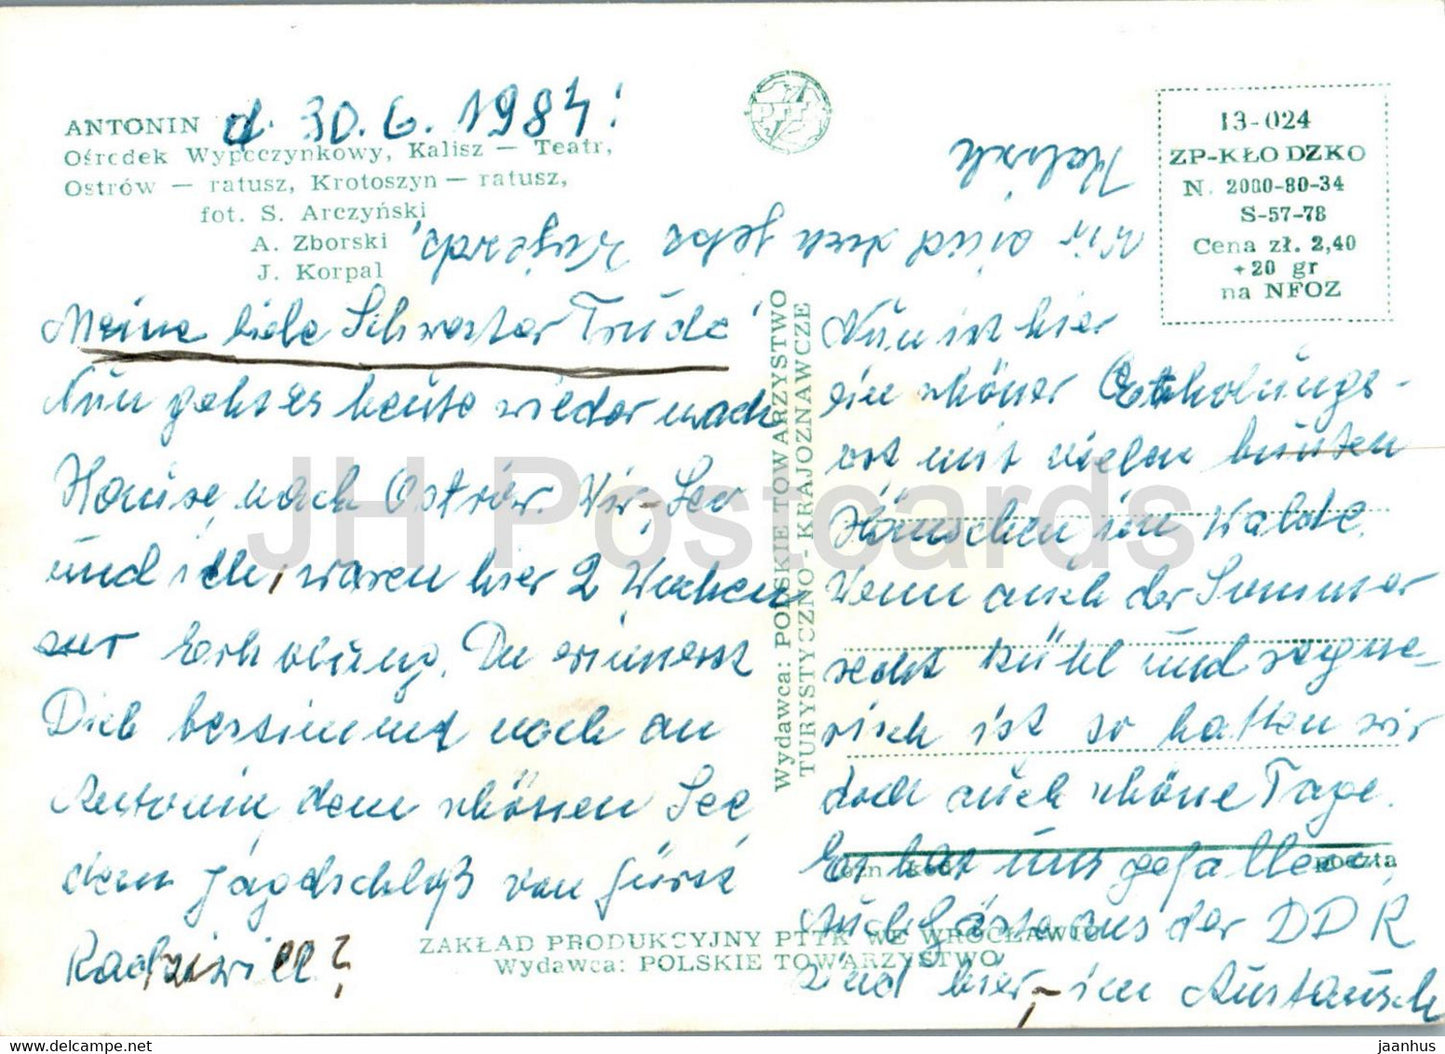 ANTONIN d. 30. 6. 1984!
Ośrodek Wypoczynkowy, Kalisz — Teatr,
Ostrów — ratusz, Krotoszyn — ratusz,
fot. S. Arczyński
A. Zborski
J. Korpal
PTTK
13-024
ZP-KŁODZKO
N. 2000-80-34
S-57-78
Cena zł. 2,40
+20 gr
na NFOZ
Wir sind
Kalisch
Meine liebe Schwester Trude!
Nun geht es heute wieder nach
Hause, nach Ostrów. Wir, Leo
und ich, waren hier 2 Wochen
zur Erholung. Du erinnerst
Dich bestimmt noch an
Antonin, dem schönen See
dem Jagdschloß von Fürst
Radziwill?
Wydawca: POLSKIE TOWARZYSTWO
TURYSTYCZNO-KRAJOZNAWCZE
Nun ist hier
ein schöner Erholungs-
ort mit vielen bunten
Häuschen, im Walde.
Wenn auch der Sommer
recht kühl und regne-
risch ist so hatten wir
doch auch schöne Tage.
Es hat uns gefallen.
Auch Gäste aus der DDR
sind hier, – im Austausch
poczta
ZAKŁAD PRODUKCYJNY PTTK WE WROCŁAWIU
Wydawca: POLSKIE TOWARZYSTWO
JH Postcards
https://www.ebay.com/str/jaanhus
jaanhus